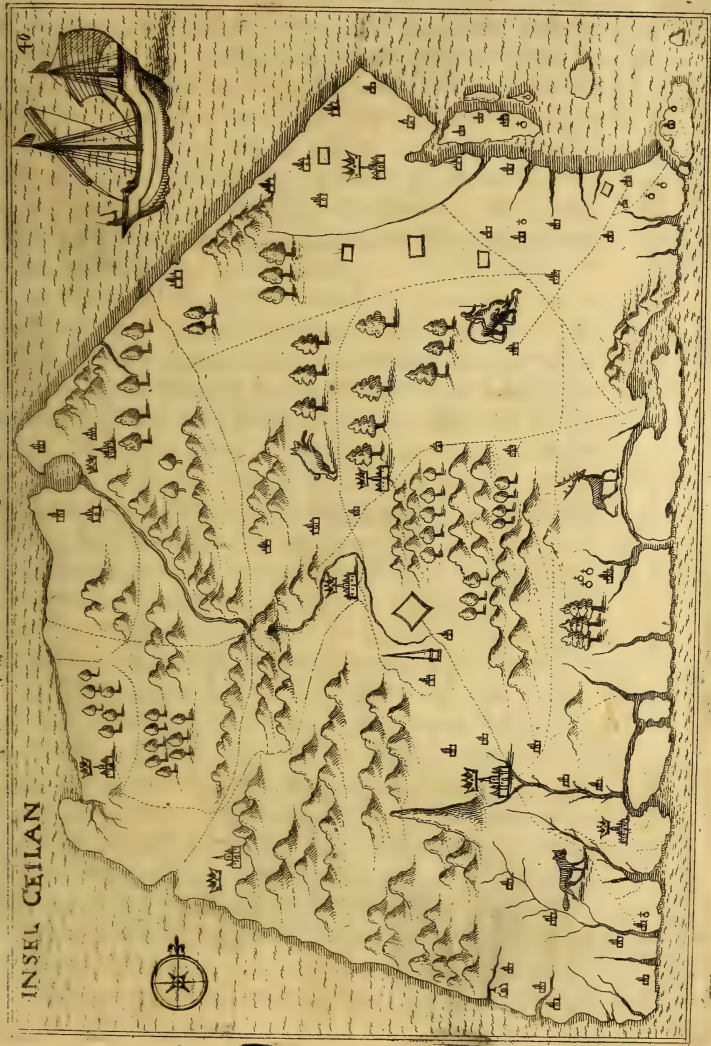 INSEL CEILAN
40